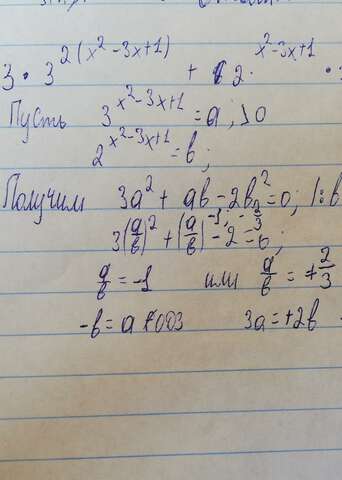 3 · 3^{2(x²-3x+1)} + 2 · ^{x²-3x+1} ·
Пусть 3^{x²-3x+1} = a; >0
2^{x²-3x+1} = b;
Получим 3a² + ab - 2b² = 0; |:b
3(a/b)² + (a/b) - 2 = 0; -1; 2/3
a/b = -1 или a/b = +2/3
-b = a ОДЗ 3a = +2b